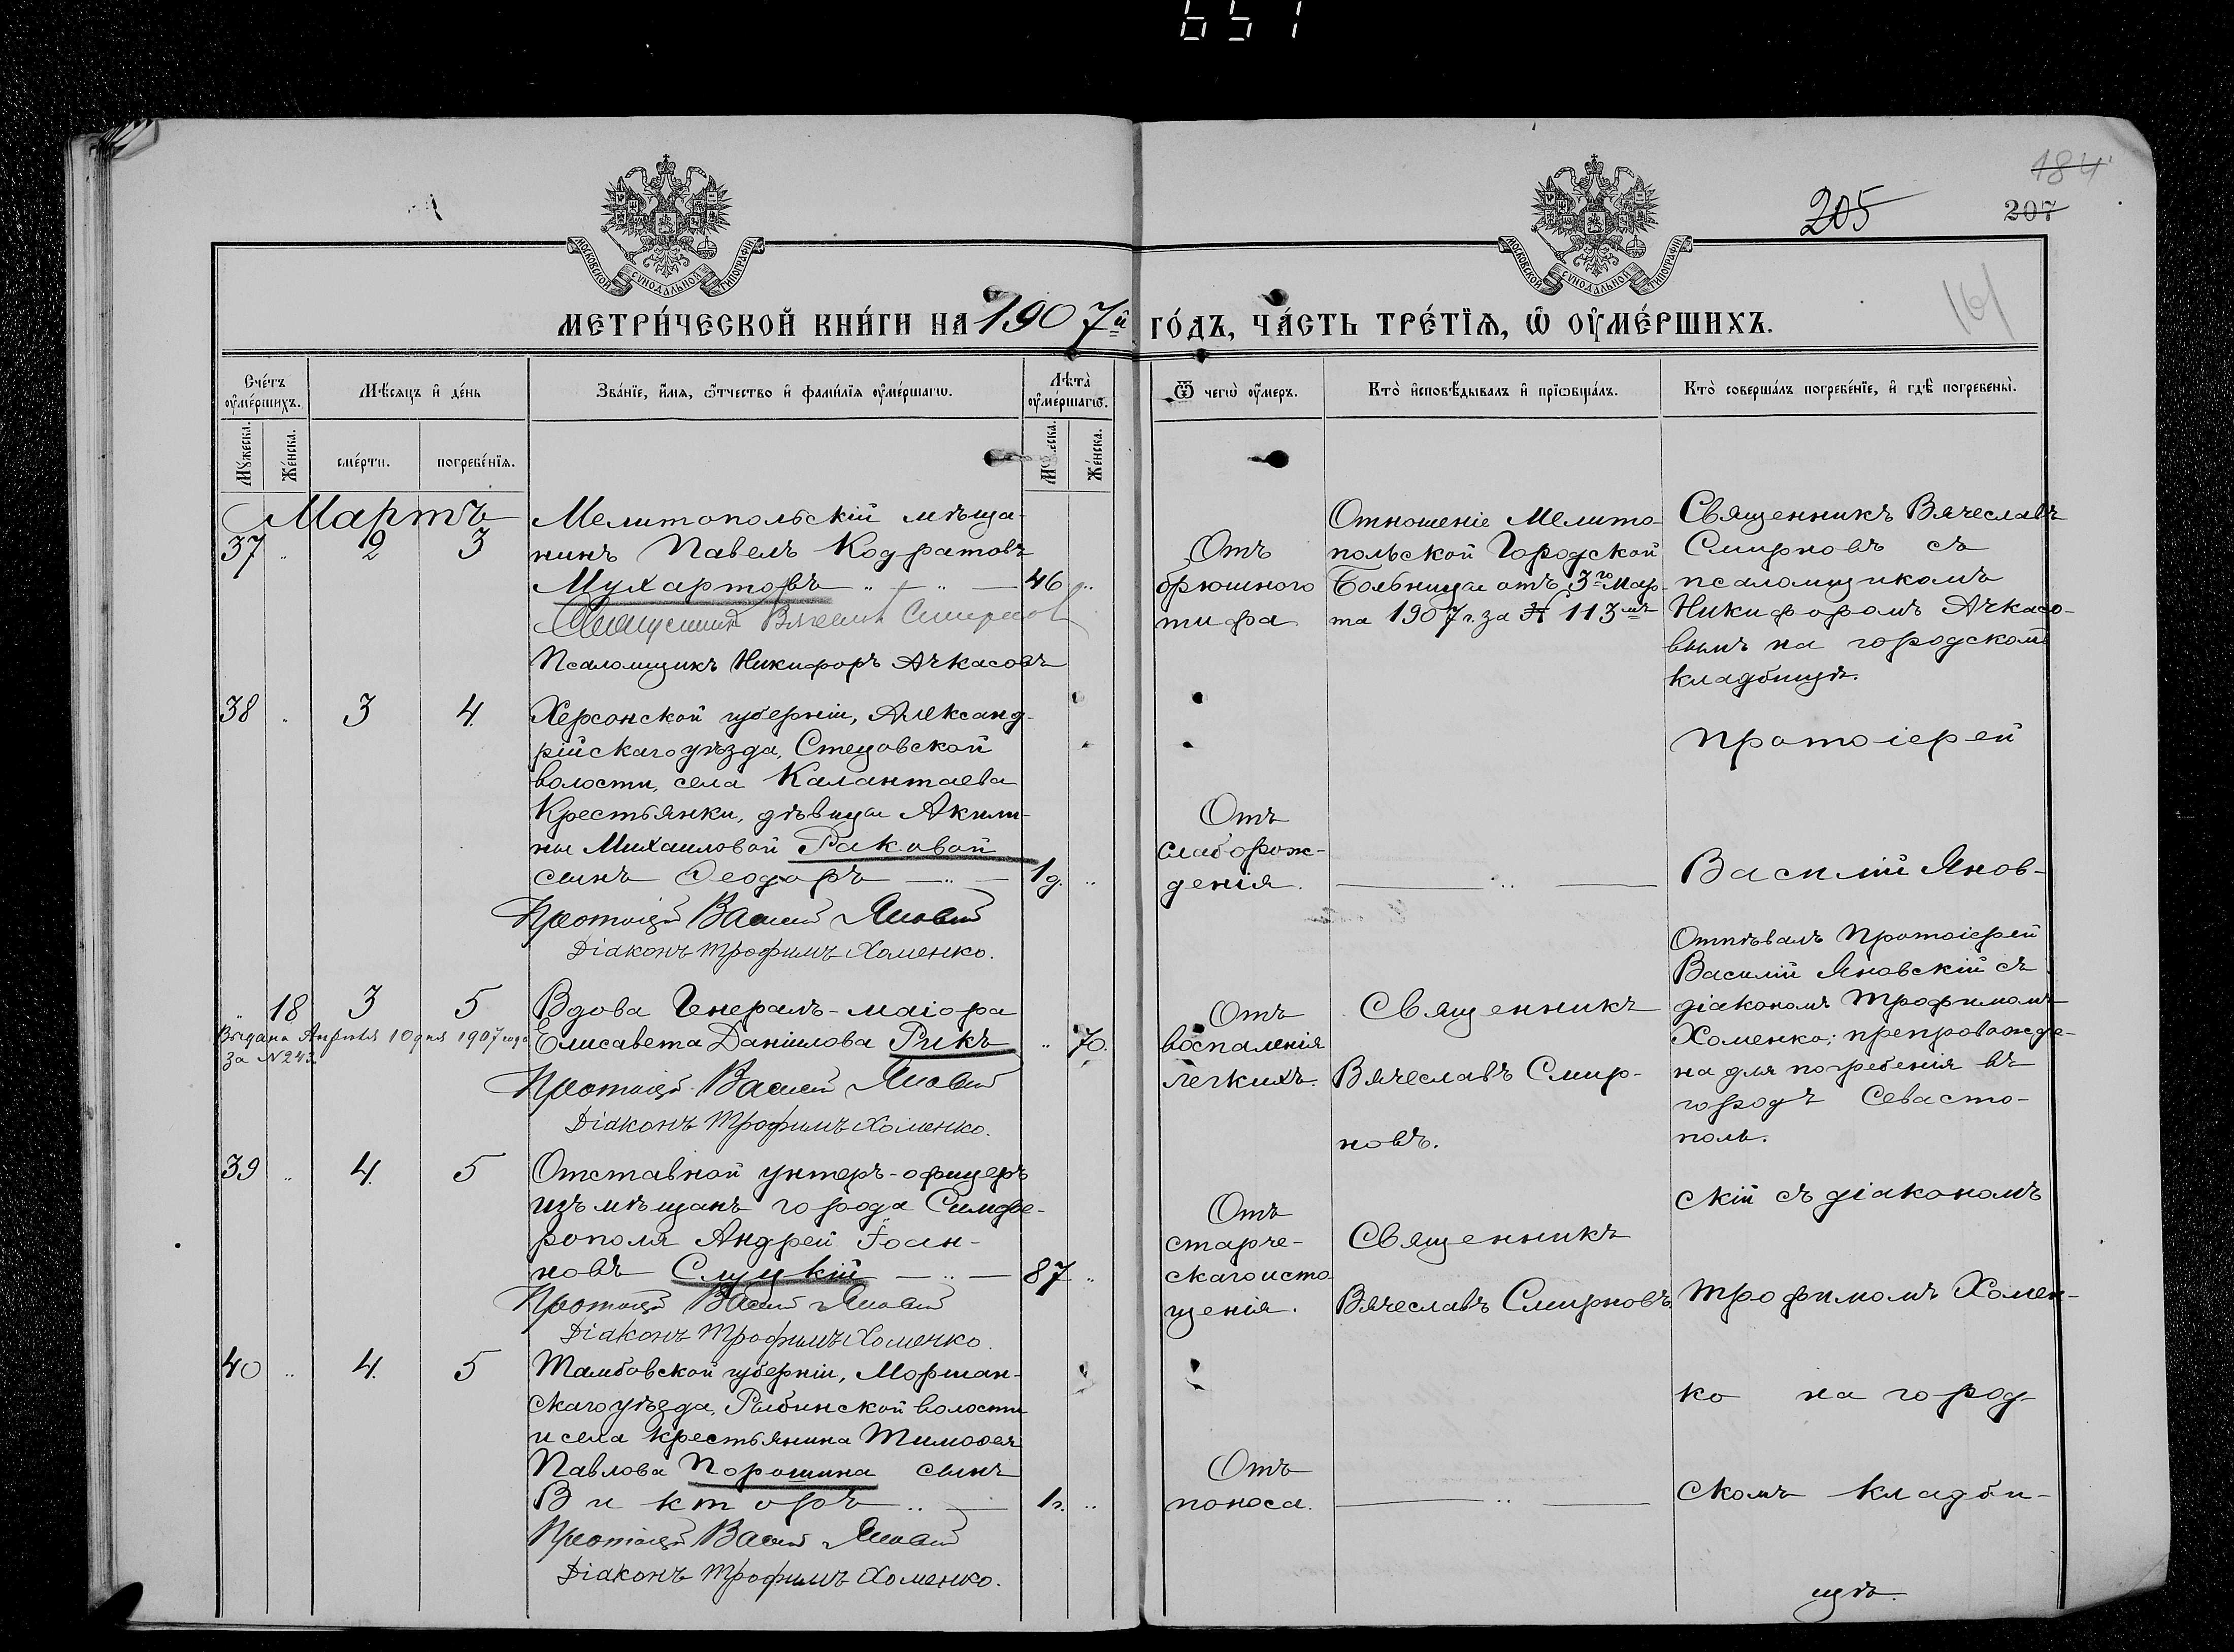 651
184
205
207
161
МОСКОВСКОЙ СѴНОДАЛЬНОЙ ТИПОГРАФІИ
МОСКОВСКОЙ СѴНОДАЛЬНОЙ ТИПОГРАФІИ
МЕТРИ́ЧЕСКОЙ КНИ́ГИ НА 1907й ГО́ДЪ, ЧА́СТЬ ТРЕ́ТІѦ, Ѿ ОУ҆МЕ́РШИХЪ.
Сче́тъ оу҆ме́ршихъ.
Мѣ́сѧцъ и҆ де́нь
Зва́нїе, и҆́мѧ, ѻ҆́тчество и҆ фами́лїѧ оу҆ме́ршагѡ.
Лѣ́та оу҆ме́ршагѡ.
Ѿ чегѡ̀ оу҆́меръ.
Кто̀ и҆сповѣ́дывалъ и҆ прїѡбща́лъ.
Кто̀ соверша́лъ погребе́нїе, и҆ гдѣ̀ погребены̀.
Мꙋ́жеска.
Же́нска.
сме́рти.
погребе́нїѧ.
Мꙋ́жеска.
Же́нска.
Мартъ
37 2 3
Мелитопольскій мѣща-
нинъ Павелъ Кодратовъ
Мухартовъ 46
Священникъ Вячеславъ Смирнов
Псаломщикъ Никифоръ Ачкасовъ
Отъ
брюшного
тифа
Отношеніе Мелито-
польской Городской
Больницы отъ 3го Мар-
та 1907 г. за № 113мъ
Священникъ Вячеславъ
Смирновъ съ
псаломщикомъ
Никифоромъ Ачкасо-
вымъ на городскомъ
кладбищѣ.
38 3 4.
Херсонской губерніи, Александ-
рійскаго уѣзда, Стецовской
волости, села Калантаева
Крестьянки, дѣвицы Акили-
ны Михаиловой Раковой
сынъ Ѳеодоръ 1 д.
Протоіерей Василій Яновскій
Діаконъ Трофимъ Хоменко.
Отъ
слаборож-
денія.
Протоіерей
Василій Янов-
18 3 5
Выдана Апрѣля 10 дня 1907 года
за № 243.
Вдова Генералъ-маіора
Елисавета Даніилова Рикъ 70.
Протоіерей Василій Яновскій
Діаконъ Трофимъ Хоменко.
Отъ
воспаленія
легкихъ.
Священникъ
Вячеславъ Смир-
новъ.
Отпѣвалъ Протоіерей
Василій Яновскій съ
діакономъ Трофимомъ
Хоменко; препровожде-
на для погребенія въ
городъ Севасто-
поль.
39 4. 5
Отставной унтеръ-офицеръ
изъ мѣщанъ города Симфе-
рополя Андрей Іоан-
новъ Слуцкій 87
Протоіерей Василій Яновскій
Діаконъ Трофимъ Хоменко.
Отъ
старче-
скаго исто-
щенія.
Священникъ
Вячеславъ Смирновъ.
скій съ діакономъ
Трофимомъ Хомен-
40 4. 5
Тамбовской губерніи, Моршан-
скаго уѣзда, Рыбинской волости
и села крестьянина Тимоѳея
Павлова Порошина сынъ
Викторъ 1 г.
Протоіерей Василій Яновскій
Діаконъ Трофимъ Хоменко.
Отъ
поноса.
ко на город-
скомъ кладби-
щѣ.